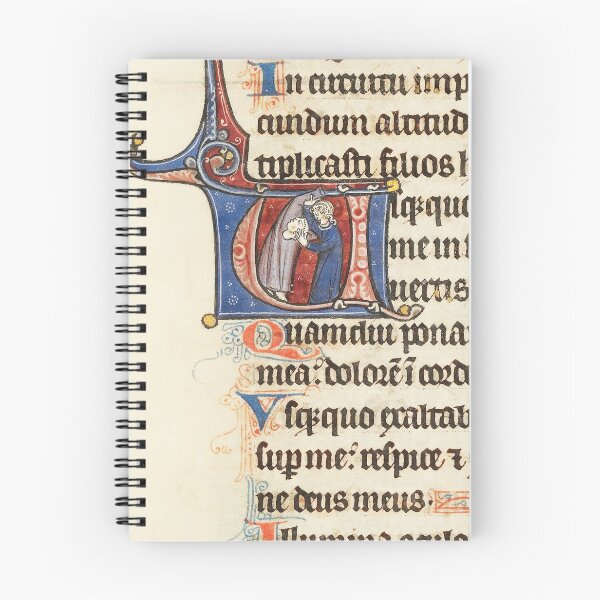 In circuitu imp
cundum altitud
tiplicasti filios h
Usqꝫ quo
me in
uertis
Quamdiu pona
mea: dolorē ī cord
Vsqꝫ quo exaltab
suꝑ me: respice ⁊
ne deus meus.
Illumina oculo